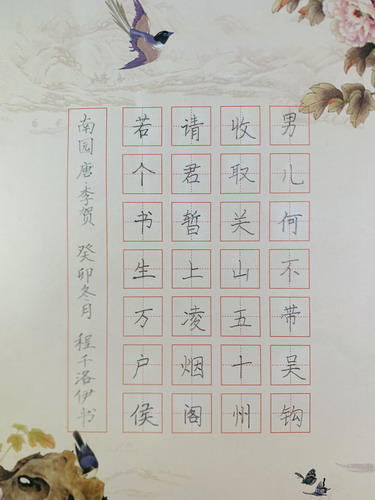 男儿何不带吴钩
收取关山五十州
请君暂上凌烟阁
若个书生万户侯
南园唐·李贺 癸卯冬月 程千洛伊书